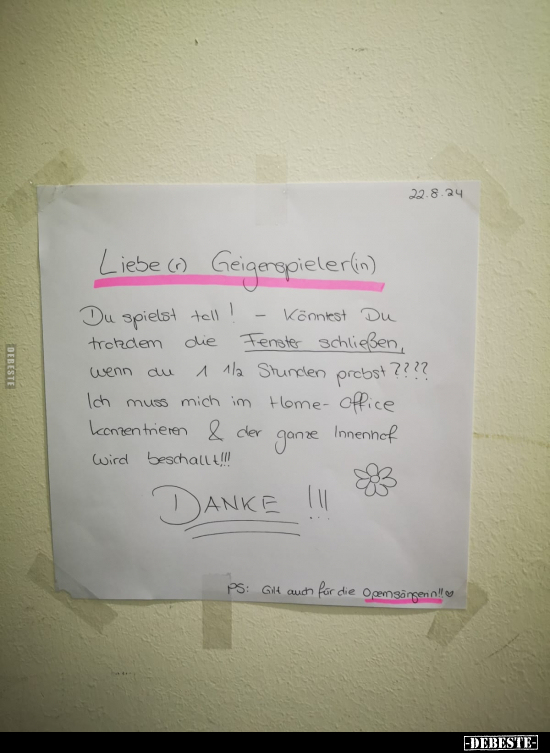 22.8.24
Liebe(r) Geigenspieler(in)
Du spielst toll! – Könntest Du
trotzdem die Fenster schließen,
wenn du 1 1/2 Stunden probst????
Ich muss mich im Home-Office
konzentrieren & der ganze Innenhof
wird beschallt!!!
DANKE !!!
PS: Gilt auch für die Opernsängerin!!
DEBESTE
-DEBESTE-